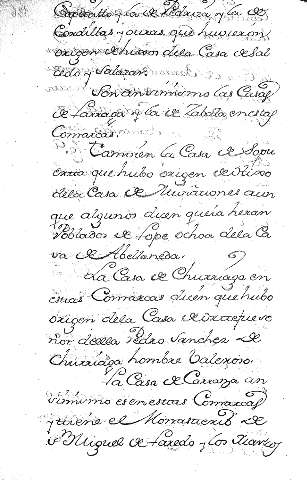 y la de Pedriza y la de
Condillas y otras, que huvieron
origen de hixos dela Casa de Sal
cedo y Salazar.
Son ansimismo las Casas
de Larraga y la de Zaballa, en estas
Comarcas.
Tamvien la Casa de
que hubo origen de Hixo
dela Casa de aun
que algunos dicen que ia heran
Poblados de Lope ochoa dela Ca
va de Abellaneda.
La Casa de Churriaga en
estas Comarcas dicen que hubo
origen dela Casa de
ñor della Pedro Sanchez de
Churriaga hombre Valeroso.
La Casa de Carranza an
simismo es en estas Comarcas
y tiene el Monasterio de
Sn Miguel de Laredo y los